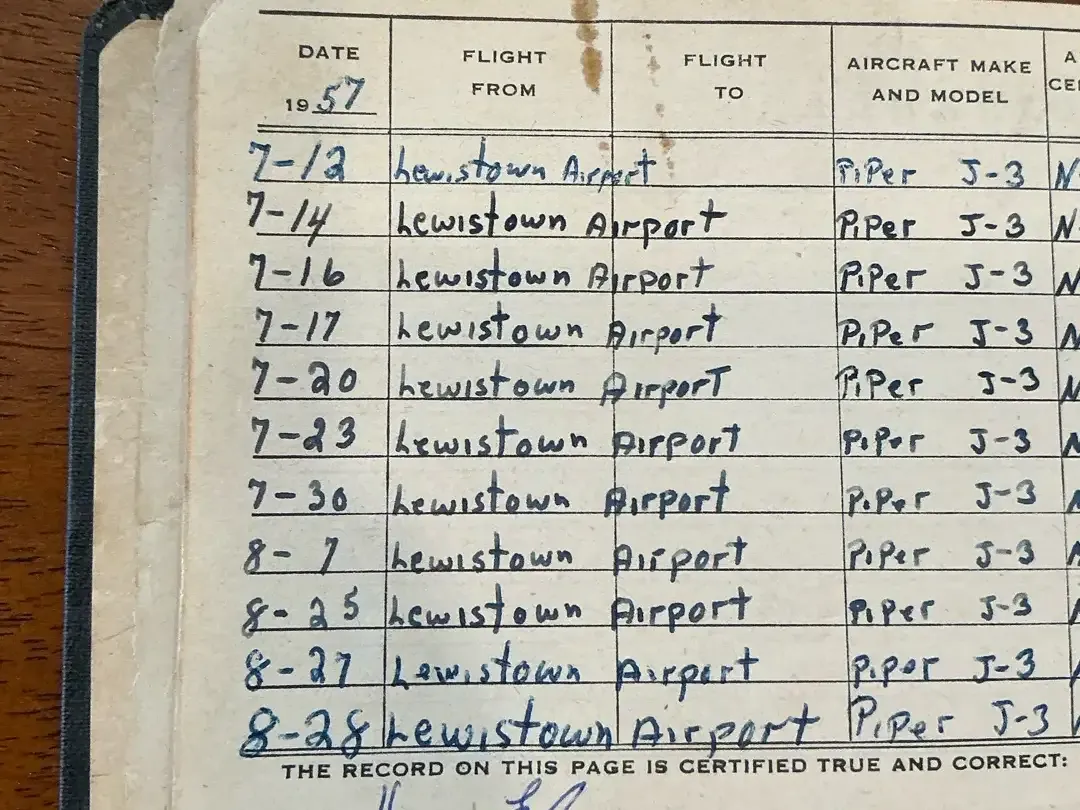 DATE FLIGHT FLIGHT AIRCRAFT MAKE A
1957 FROM TO AND MODEL CE
7-12 Lewistown Airport Piper J-3 N
7-14 Lewistown Airport Piper J-3 N
7-16 Lewistown Airport Piper J-3 N
7-17 Lewistown Airport Piper J-3 N
7-20 Lewistown Airport Piper J-3 N
7-23 Lewistown Airport Piper J-3 N
7-30 Lewistown Airport Piper J-3
8-7 Lewistown Airport Piper J-3
8-25 Lewistown Airport Piper J-3
8-27 Lewistown Airport Piper J-3
8-28 Lewistown Airport Piper J-3
THE RECORD ON THIS PAGE IS CERTIFIED TRUE AND CORRECT: